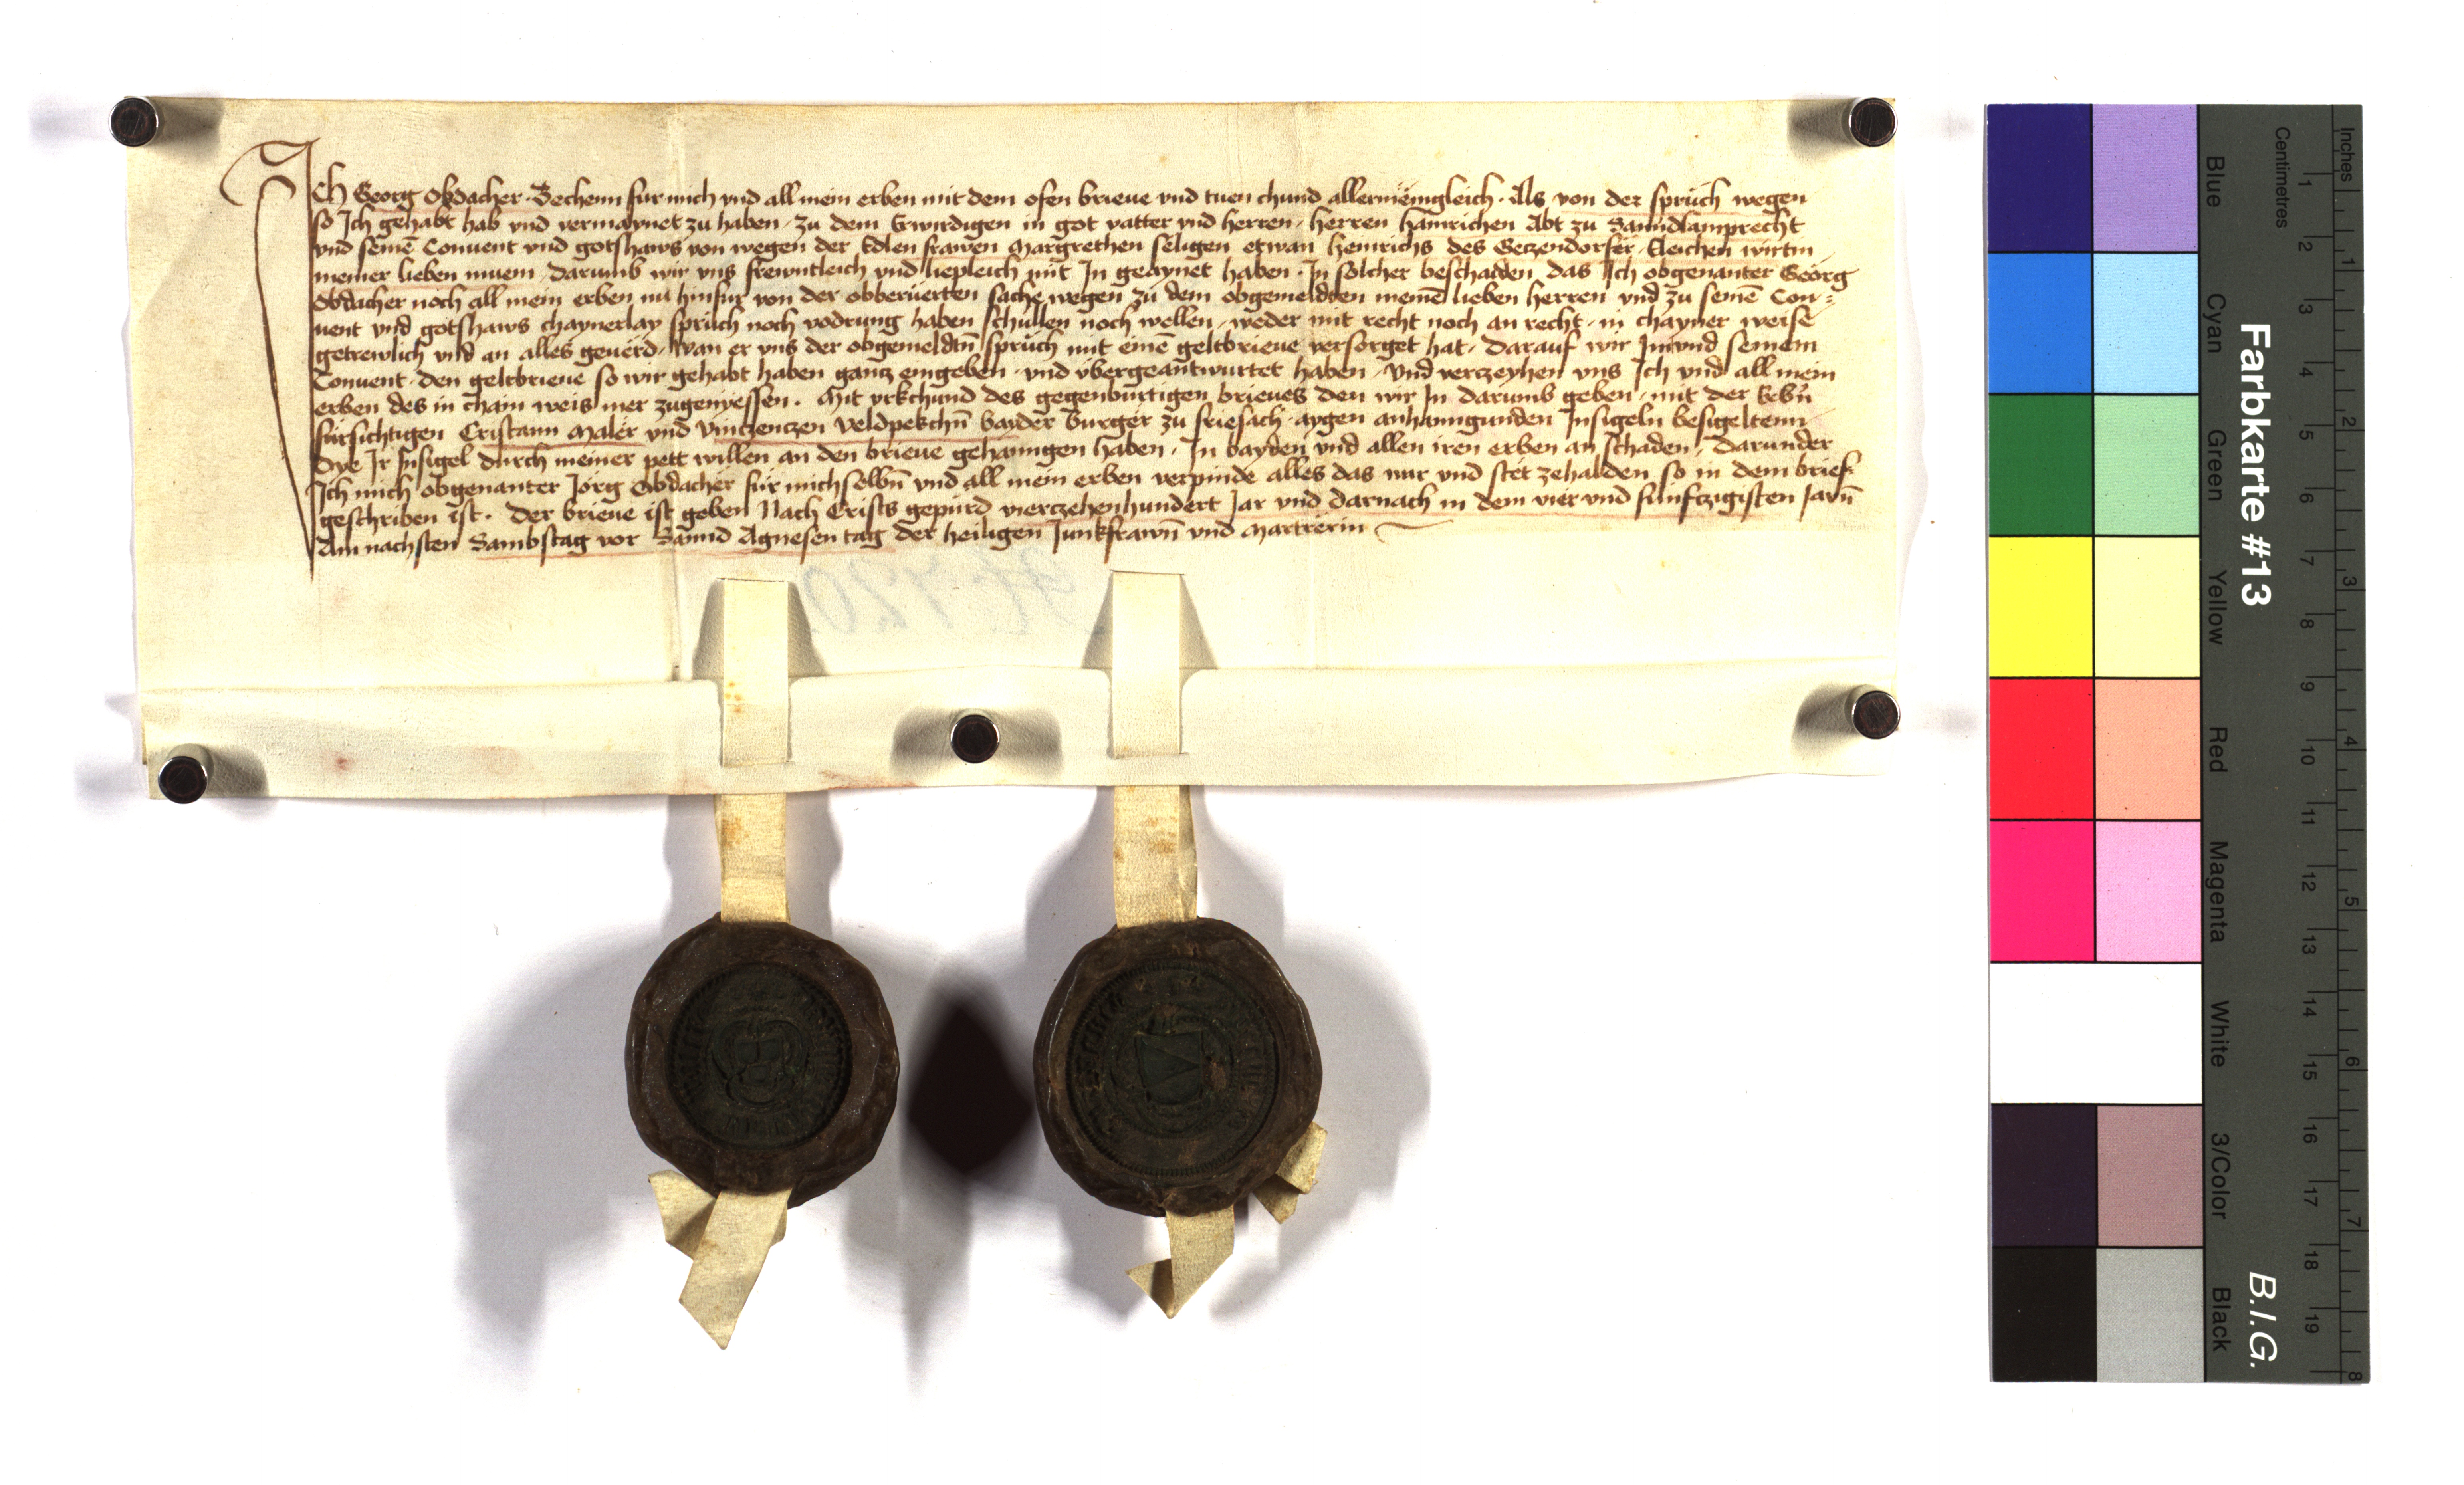 ICh Georg Obdacher Bechenn fur mich vnd all mein erben mit dem ofen brieue vnd tuen chund allermeingleich. Als von der spruch wegen
so Ich gehabt hab vnd vermaynet zu haben, zu dem Erwirdigen in got vatter vnd herren, herren hainrichen Abt zu Sanndlamprecht
vnd seinē Conuent vnd gotshaws von wegen der Edlen frawen Margrethen seligen etwan heinrichs des Geczendorfer Eleichen wirtin
meiner lieben muem, darumb wir vns frewntleich vnd liepleich mit In geaynet haben. In solcher beschaiden das Ich obgenanter Georg
Obdacher noch all mein erben nu hinfur von der obberuerten sache wegen zu dem obgemeldten meinē lieben herren vnd zu seinē Con=
uent vnd gotshaws chaynerlay spruch noch vodrung haben schullen noch wellen, weder mit recht noch an recht, in chayner weise
getrewlich vnd an alles geuerd, wan er vns der obgemeldtn̄ spruch mit einē geltbrieue versorget hat, darauf wir Im vnd seinem
Conuent, den geltbrieue so wir gehabt haben gancz eingeben, vnd vbergeantwurtet haben, vnd verczeyhen vns Ich vnd all mein
erben des in chain weis mer zugenyessen. Mit vrkchund des gegenburtigen brieues den wir In darumb geben, mit der Erbn̄
fursichtigen Cristann Maler vnd Vinczenczen Veldpekchn̄ bayder burger zu friesach, aygen anhanngunden Insigeln besigeltenn
Dye Ir Insigel durch meiner pett willen an den brieue gehanngen haben, In bayden vnd allen iren erben an schaden, darunder
Ich mich obgenanter Jorg Obdacher fur mich selbn̄ vnd all mein erben verpinde alles das war vnd stet zehalden so in dem brief
geschriben ist. Der brieue ist geben Nach Crists gepurd vierczehenhundert Jar vnd darnach in dem vier vnd funfczigisten Jarn̄
Am nachsten Sambstag vor Sannd Agnesen tag der heiligen Junkfrawn̄ vnd Martrerin
Farbkarte #13
B.I.G.
Blue
Cyan
Green
Yellow
Red
Magenta
White
3/Color
Black
Centimetres
1 2 3 4 5 6 7 8 9 10 11 12 13 14 15 16 17 18 19
Inches
1 2 3 4 5 6 7 8